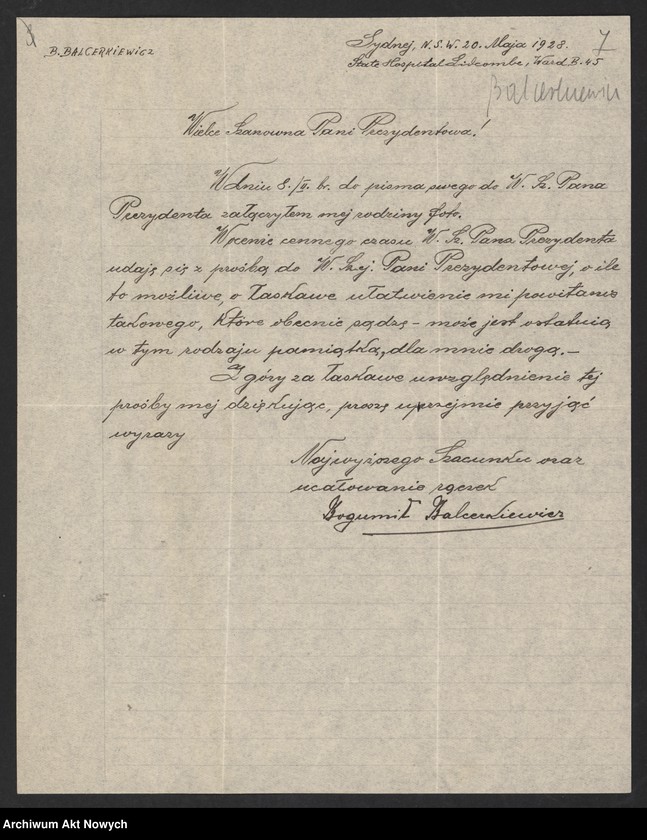 B. BALCERKIEWICZ
Sydnej, N.S.W. 20. Maja 1928.
7
State Hospital Lidcombe, Ward B. 45
Balcerkiewicz
Wielce Szanowna Pani Prezydentowa!
W dniu 8./II. br. do pisma swego do W. Sz. Pana
Prezydenta załączyłem mej rodziny foto.
W ocenie cennego czasu W. Sz. Pana Prezydenta
udaję się z prośbą do W. Szej. Pani Prezydentowej, o ile
to możliwe, o łaskawe ułatwienie mi
takowego, które obecnie sądzę - może jest ostatnią
w tym rodzaju pamiątką, dla mnie drogą. -
Z góry za łaskawe uwzględnienie tej
prośby mej dziękując, proszę uprzejmie przyjąć
wyrazy
Najwyższego Szacunku oraz
ucałowanie rączek
Bogumił Balcerkiewicz
Archiwum Akt Nowych